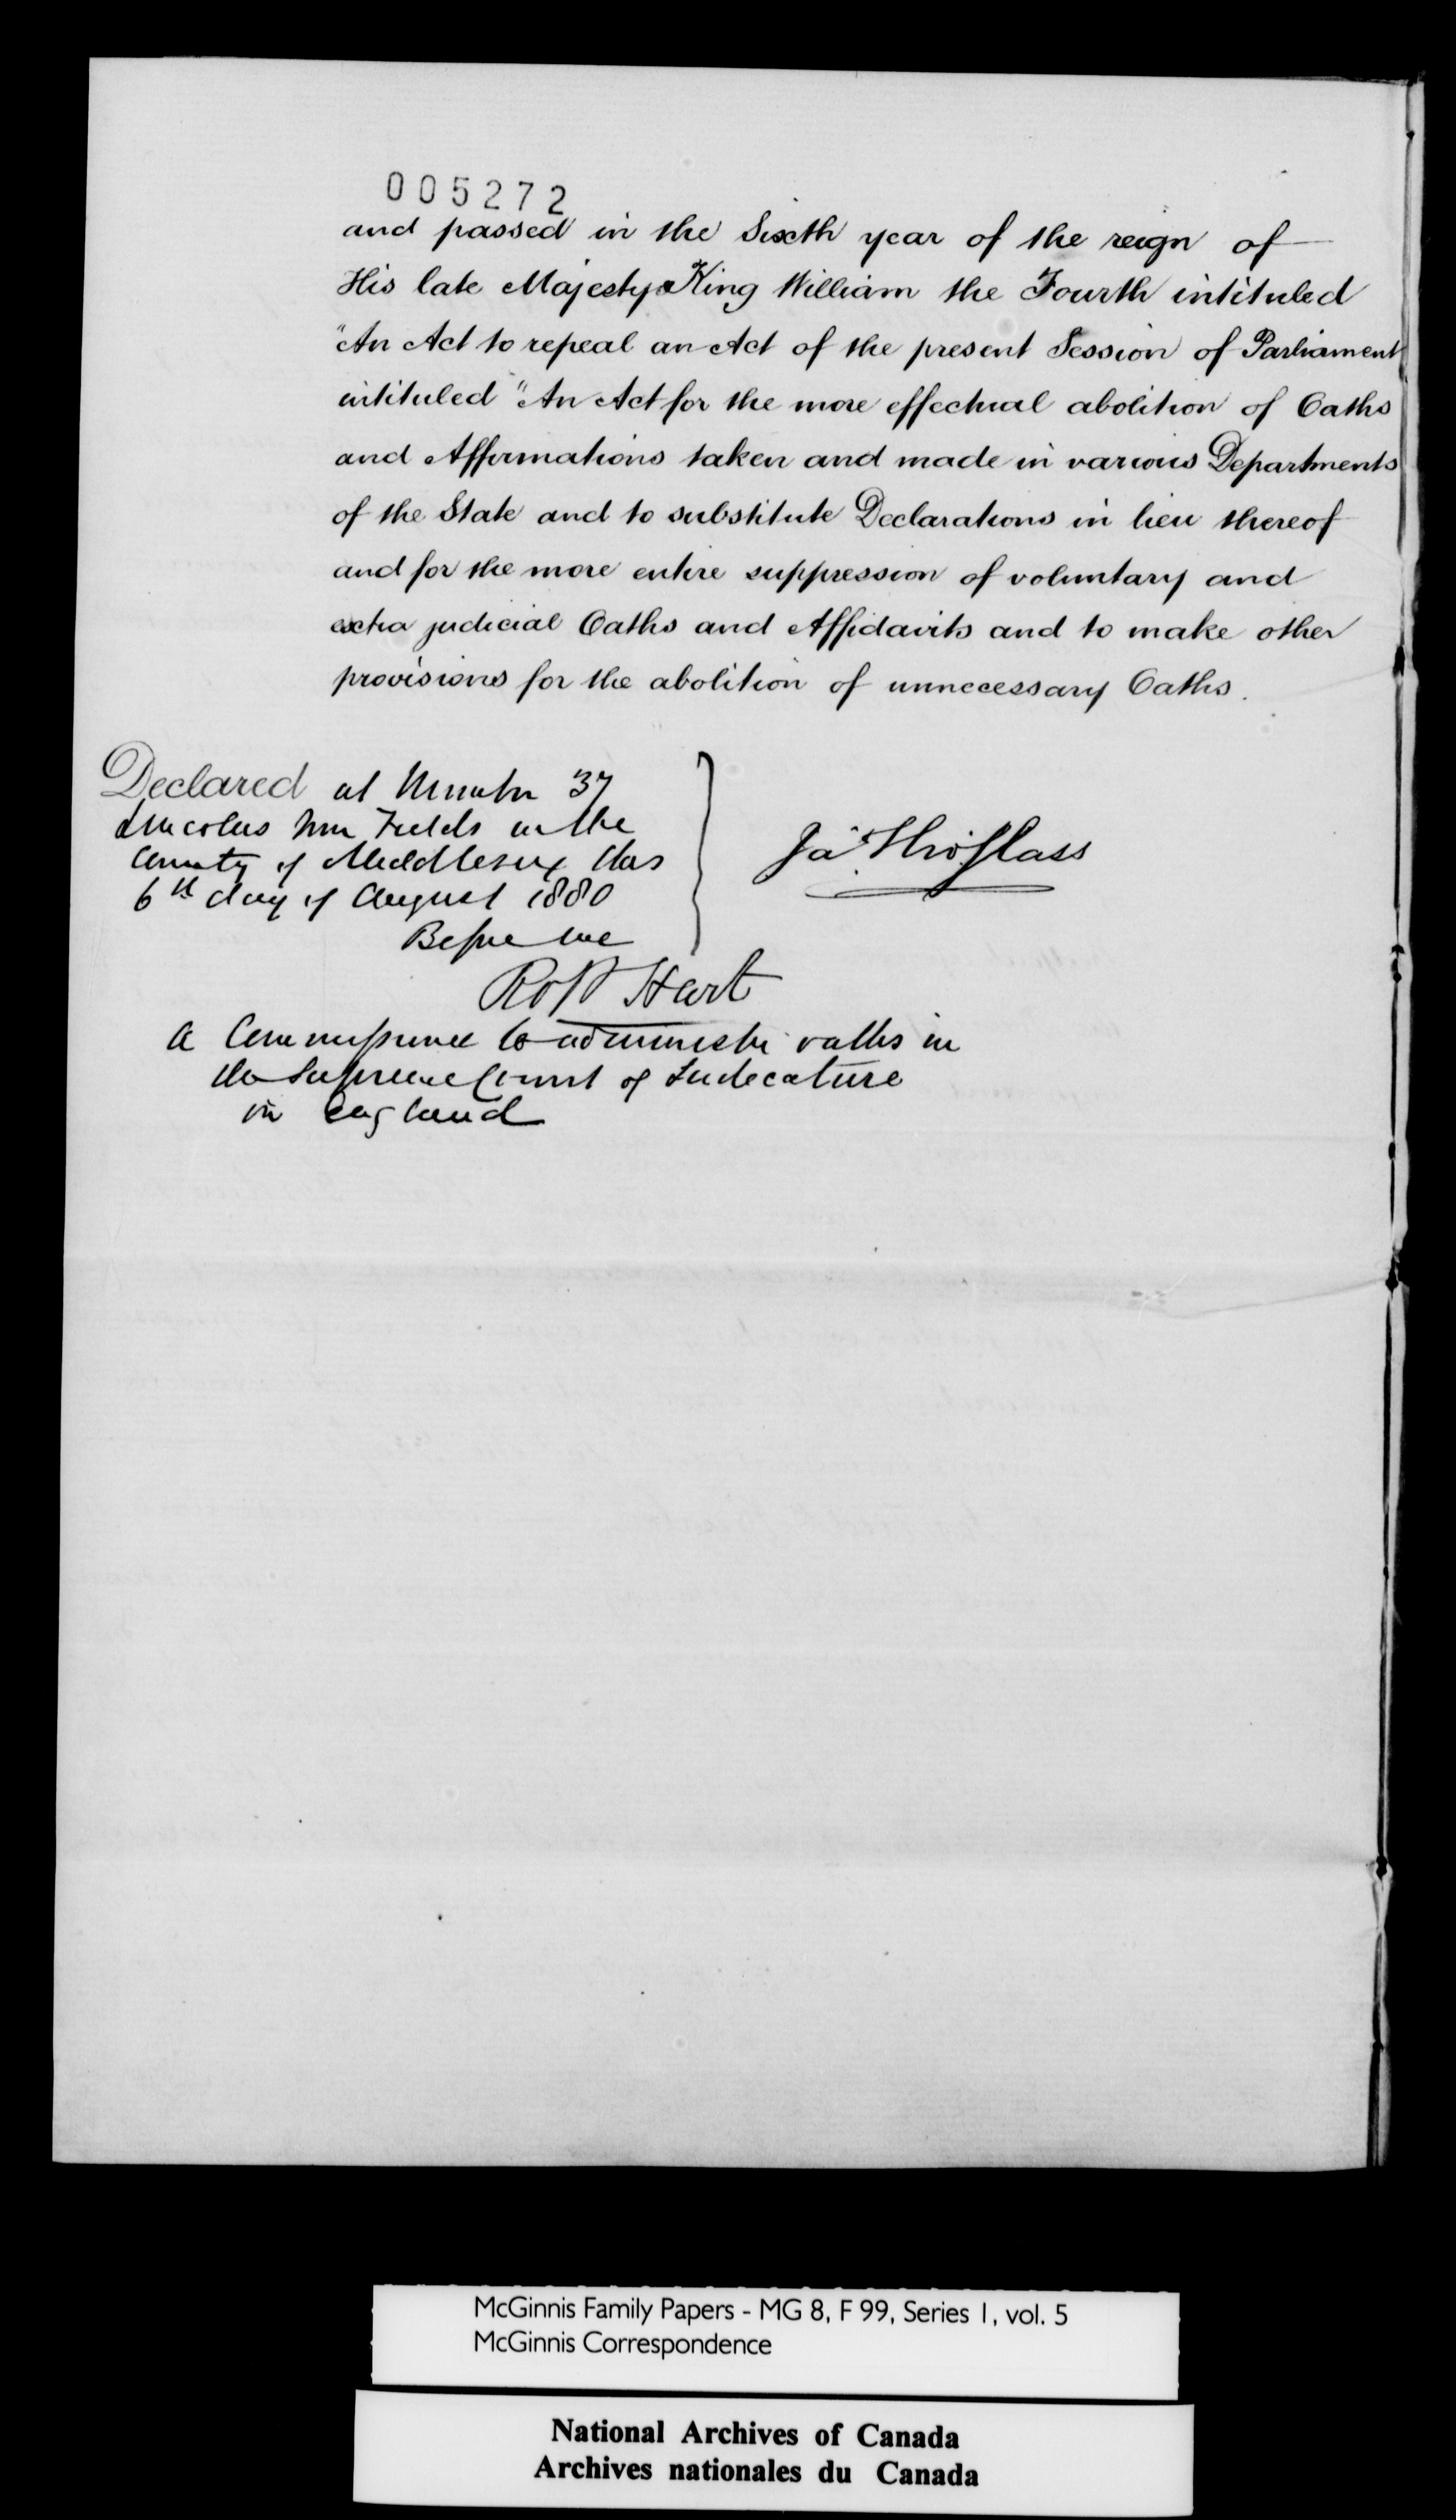 005272
and passed in the Sixth year of the reign of
His late Majesty King William the Fourth intituled
"An Act to repeal an Act of the present Session of Parliament
intituled "An Act for the more effectual abolition of Oaths
and Affirmations taken and made in various Departments
of the State and to substitute Declarations in lieu thereof
and for the more entire suppression of voluntary and
extra judicial Oaths and Affidavits and to make other
provisions for the abolition of unnecessary Oaths.
Declared at Number 37
Lincolns Inn Fields in the
County of Middlesex this
6th day of August 1880
Before me
Hart
A Commissioner to administer oaths in
the Supreme Court of Judicature
in England
McGinnis Family Papers - MG 8, F 99, Series 1, vol. 5
McGinnis Correspondence
National Archives of Canada
Archives nationales du Canada